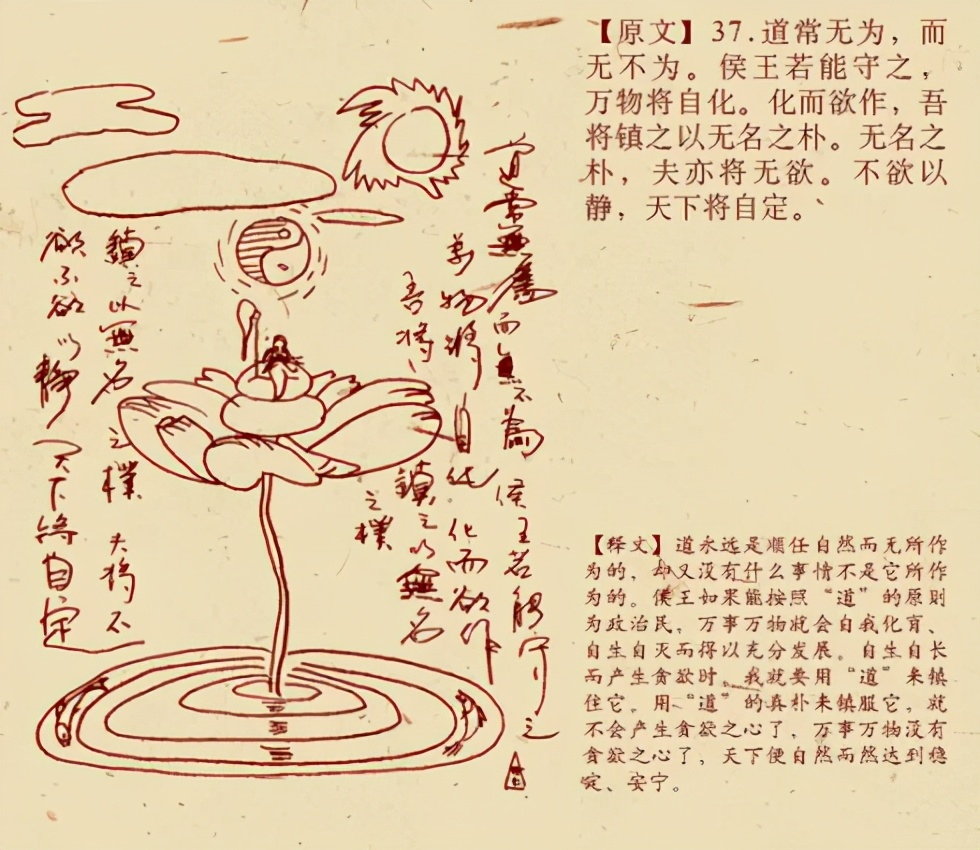 【原文】37.道常无为，而
无不为。侯王若能守之，
万物将自化。化而欲作，吾
将镇之以无名之朴。无名之
朴，夫亦将无欲。不欲以
静，天下将自定。
道常無為而無不為侯王若能守之
萬物將自化化而欲作
吾將
鎮之以無名
之樸
鎮之以無名之樸夫將不
欲不欲以靜天下將自定
【释文】道永远是顺任自然而无所作
为的，却又没有什么事情不是它所作
为的。侯王如果能按照“道”的原则
为政治民，万事万物就会自我化育、
自生自灭而得以充分发展。自生自长
而产生贪欲时，我就要用“道”来镇
住它。用“道”的真朴来镇服它，就
不会产生贪欲之心了，万事万物没有
贪欲之心了，天下便自然而然达到稳
定、安宁。